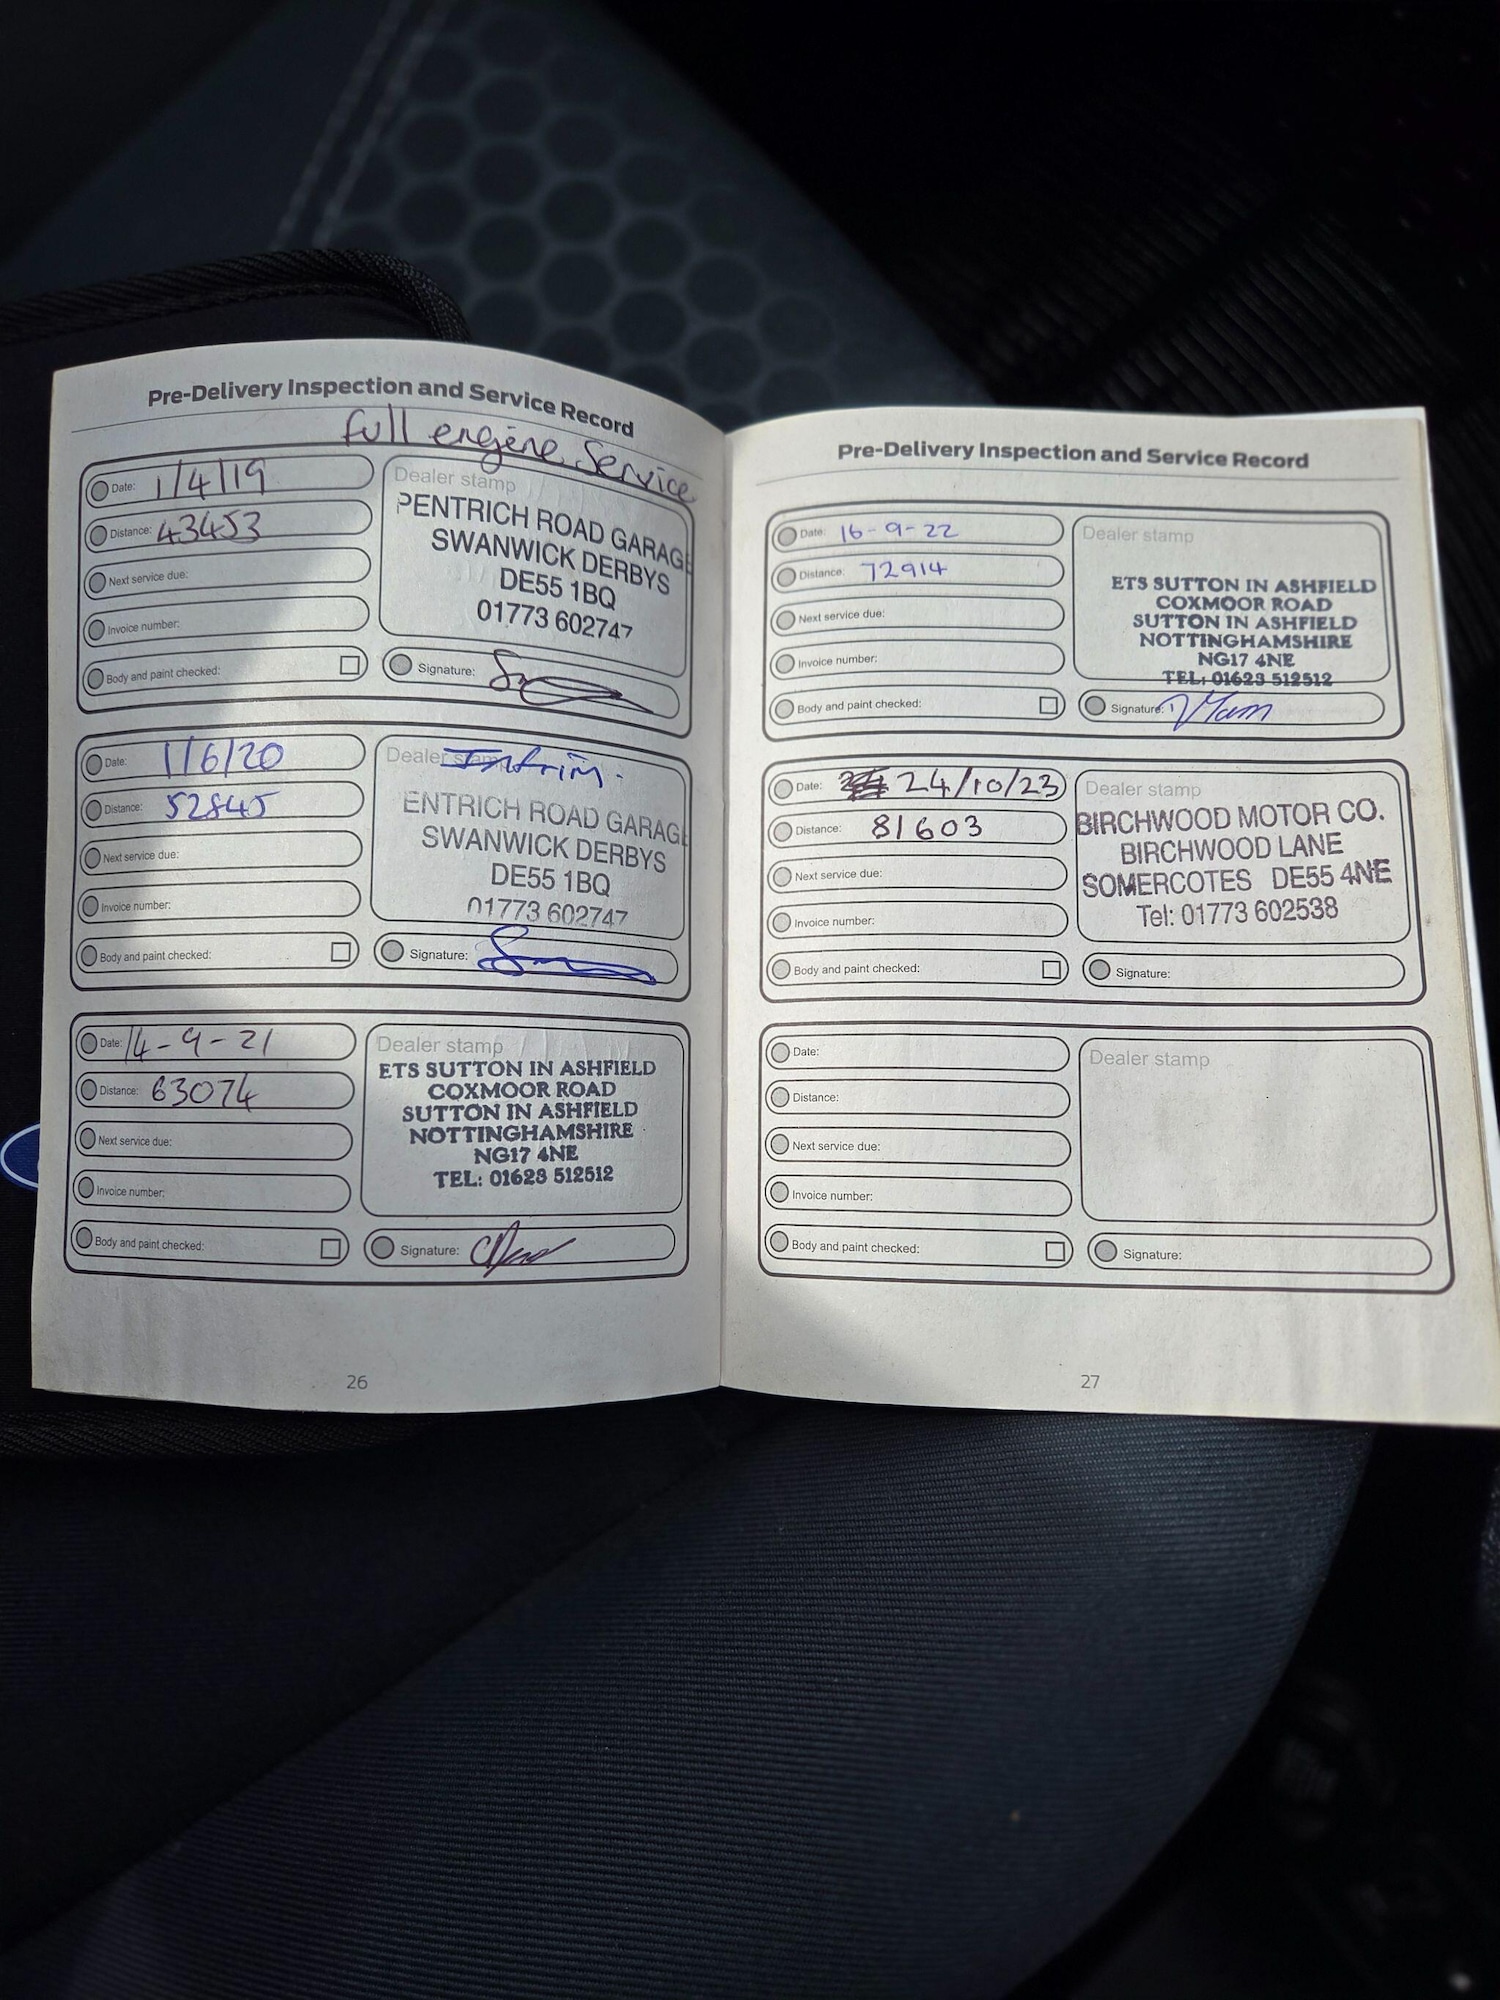 Pre-Delivery Inspection and Service Record
full engine Service
Date: 1/4/19
Distance: 43453
Next service due:
Invoice number:
Body and paint checked:
Dealer stamp
PENTRICH ROAD GARAGE
SWANWICK DERBYS
DE55 1BQ
01773 602747
Signature:
Date: 1/6/20
Distance: 52845
Next service due:
Invoice number:
Body and paint checked:
Dealer stamp Interim.
ENTRICH ROAD GARAGE
SWANWICK DERBYS
DE55 1BQ
01773 602747
Signature:
Date: 14-9-21
Distance: 63074
Next service due:
Invoice number:
Body and paint checked:
Dealer stamp
ETS SUTTON IN ASHFIELD
COXMOOR ROAD
SUTTON IN ASHFIELD
NOTTINGHAMSHIRE
NG17 4NE
TEL: 01623 512512
Signature:
26
Pre-Delivery Inspection and Service Record
Date: 16-9-22
Distance: 72914
Next service due:
Invoice number:
Body and paint checked:
Dealer stamp
ETS SUTTON IN ASHFIELD
COXMOOR ROAD
SUTTON IN ASHFIELD
NOTTINGHAMSHIRE
NG17 4NE
TEL: 01623 512512
Signature:
Date: 24/10/23
Distance: 81603
Next service due:
Invoice number:
Body and paint checked:
Dealer stamp
BIRCHWOOD MOTOR CO.
BIRCHWOOD LANE
SOMERCOTES DE55 4NE
Tel: 01773 602538
Signature:
Date:
Distance:
Next service due:
Invoice number:
Body and paint checked:
Dealer stamp
Signature:
27